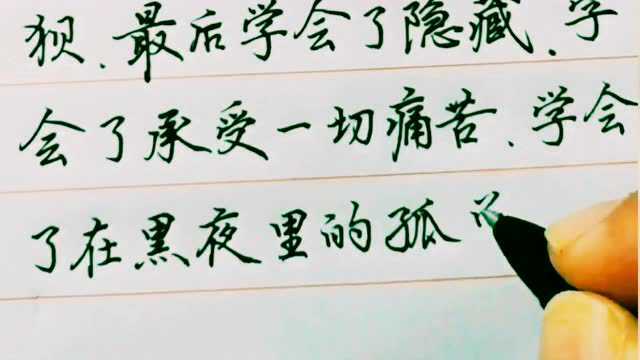 狈、最后学会了隐藏、学
会了承受一切痛苦、学会
了在黑夜里的孤